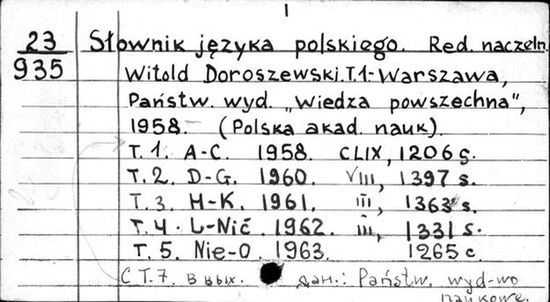 23 Słownik języka polskiego. Red. naczeln.
935 Witold Doroszewski. T.1- Warszawa,
Państw. wyd. „Wiedza powszechna",
1958. (Polska akad. nauk).
T. 1. A-C. 1958. CLIX, 1206 s.
T. 2. D-G. 1960. VIII, 1397 s.
T. 3. H-K. 1961. III, 1363 s.
T. 4. L-Nić. 1962. III, 1331 s.
T. 5. Nie-O. 1963. 1265 с.
С Т.7. в вых. дан.: Państw. wyd-wo
naukowe.